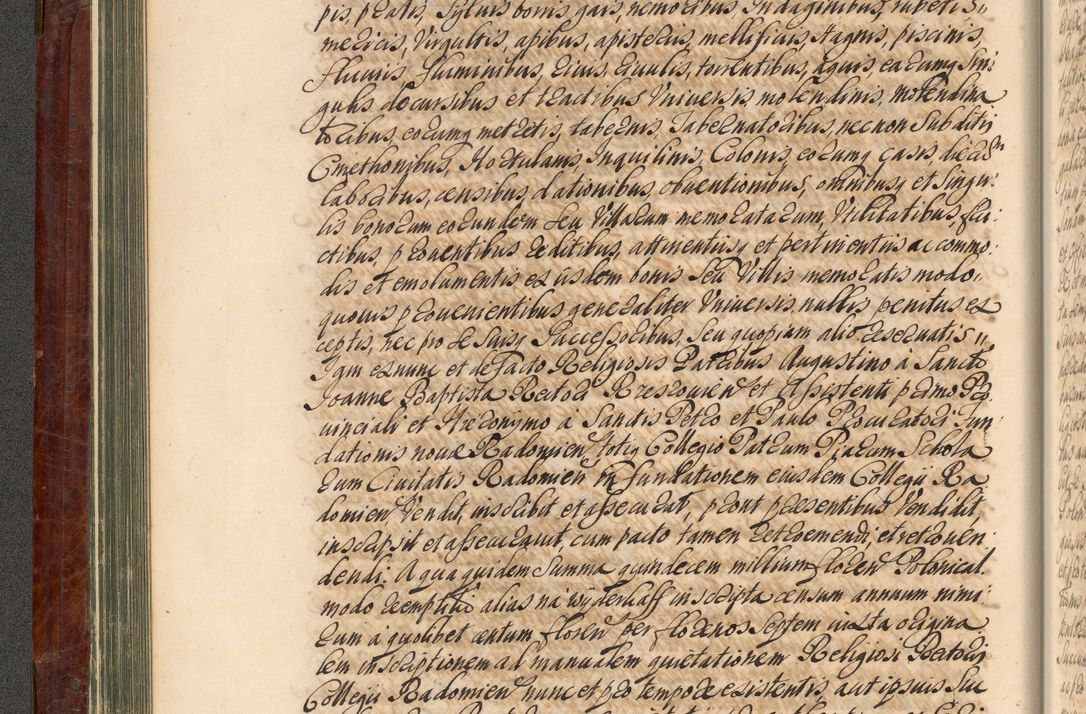 pis, pratis, Sylvis boris gais, nemoribus, Indaginibus, rubetis
mericis, Virgultis, apibus, apisteriis, mellificiis, stagnis, piscinis,
fluviis, fluminibus, rivis, rivulis, torrentibus, aquis, earumq Sin
gulis decursibus et tractibus Vniversis, molendinis, molendina
toribus, eorumq metretis, tabernis, Tabernatoribus, necnon Subditis
Cmethonibus, Hortulanis Inquilinis, Colonis, eorumq casis,
laboribus, censibus, dationibus, obventionibus, omnibusq et Singu
lis bonorum eorundem Seu Villarum memoratarum, Vtilitatibus, fru
ctibus, proventibus reditibus, attinentiisq et pertinentiis accommo
dis et emolumentis ex iisdem bonis Seu Villis memoratis modo
quovis provenientibus generaliter Vniversis, nullis penitus ex
ceptis, nec pro se suisq Successoribus, Seu quopiam alio reservatis
Iam ex nunc et de Facto Religiosis Patribus Augustino à Sancto
Joanne Baptista Rectori Rzeszovien et Assistenti primo Pro
vinciali et Hieronymo à Sanctis Petro et Paulo Procuratori Fun
dationis novæ Radomien totiq Collegio Patrum Piarum Schola
rum Civitatis Radomien in fundationem eiusdem Collegii Ra
domien Vendit, inscribit et assecurat, prout præsentibus Vendidit,
inscripsit et assecuravit, cum pacto tamen retroemendi, et retroven
dendi. A qua quidem Summa quindecem millium floren Polonical
modo reemptitio alias na wyderkaff inscripta censum annuum nimi
rum à quolibet centum floren per florenos Septem iuxta origina
lem inscriptionem al manualem quietationem Religiosi Rectoris
Collegii Radomien nunc et pro tempore existentis, aut ipsius Suc